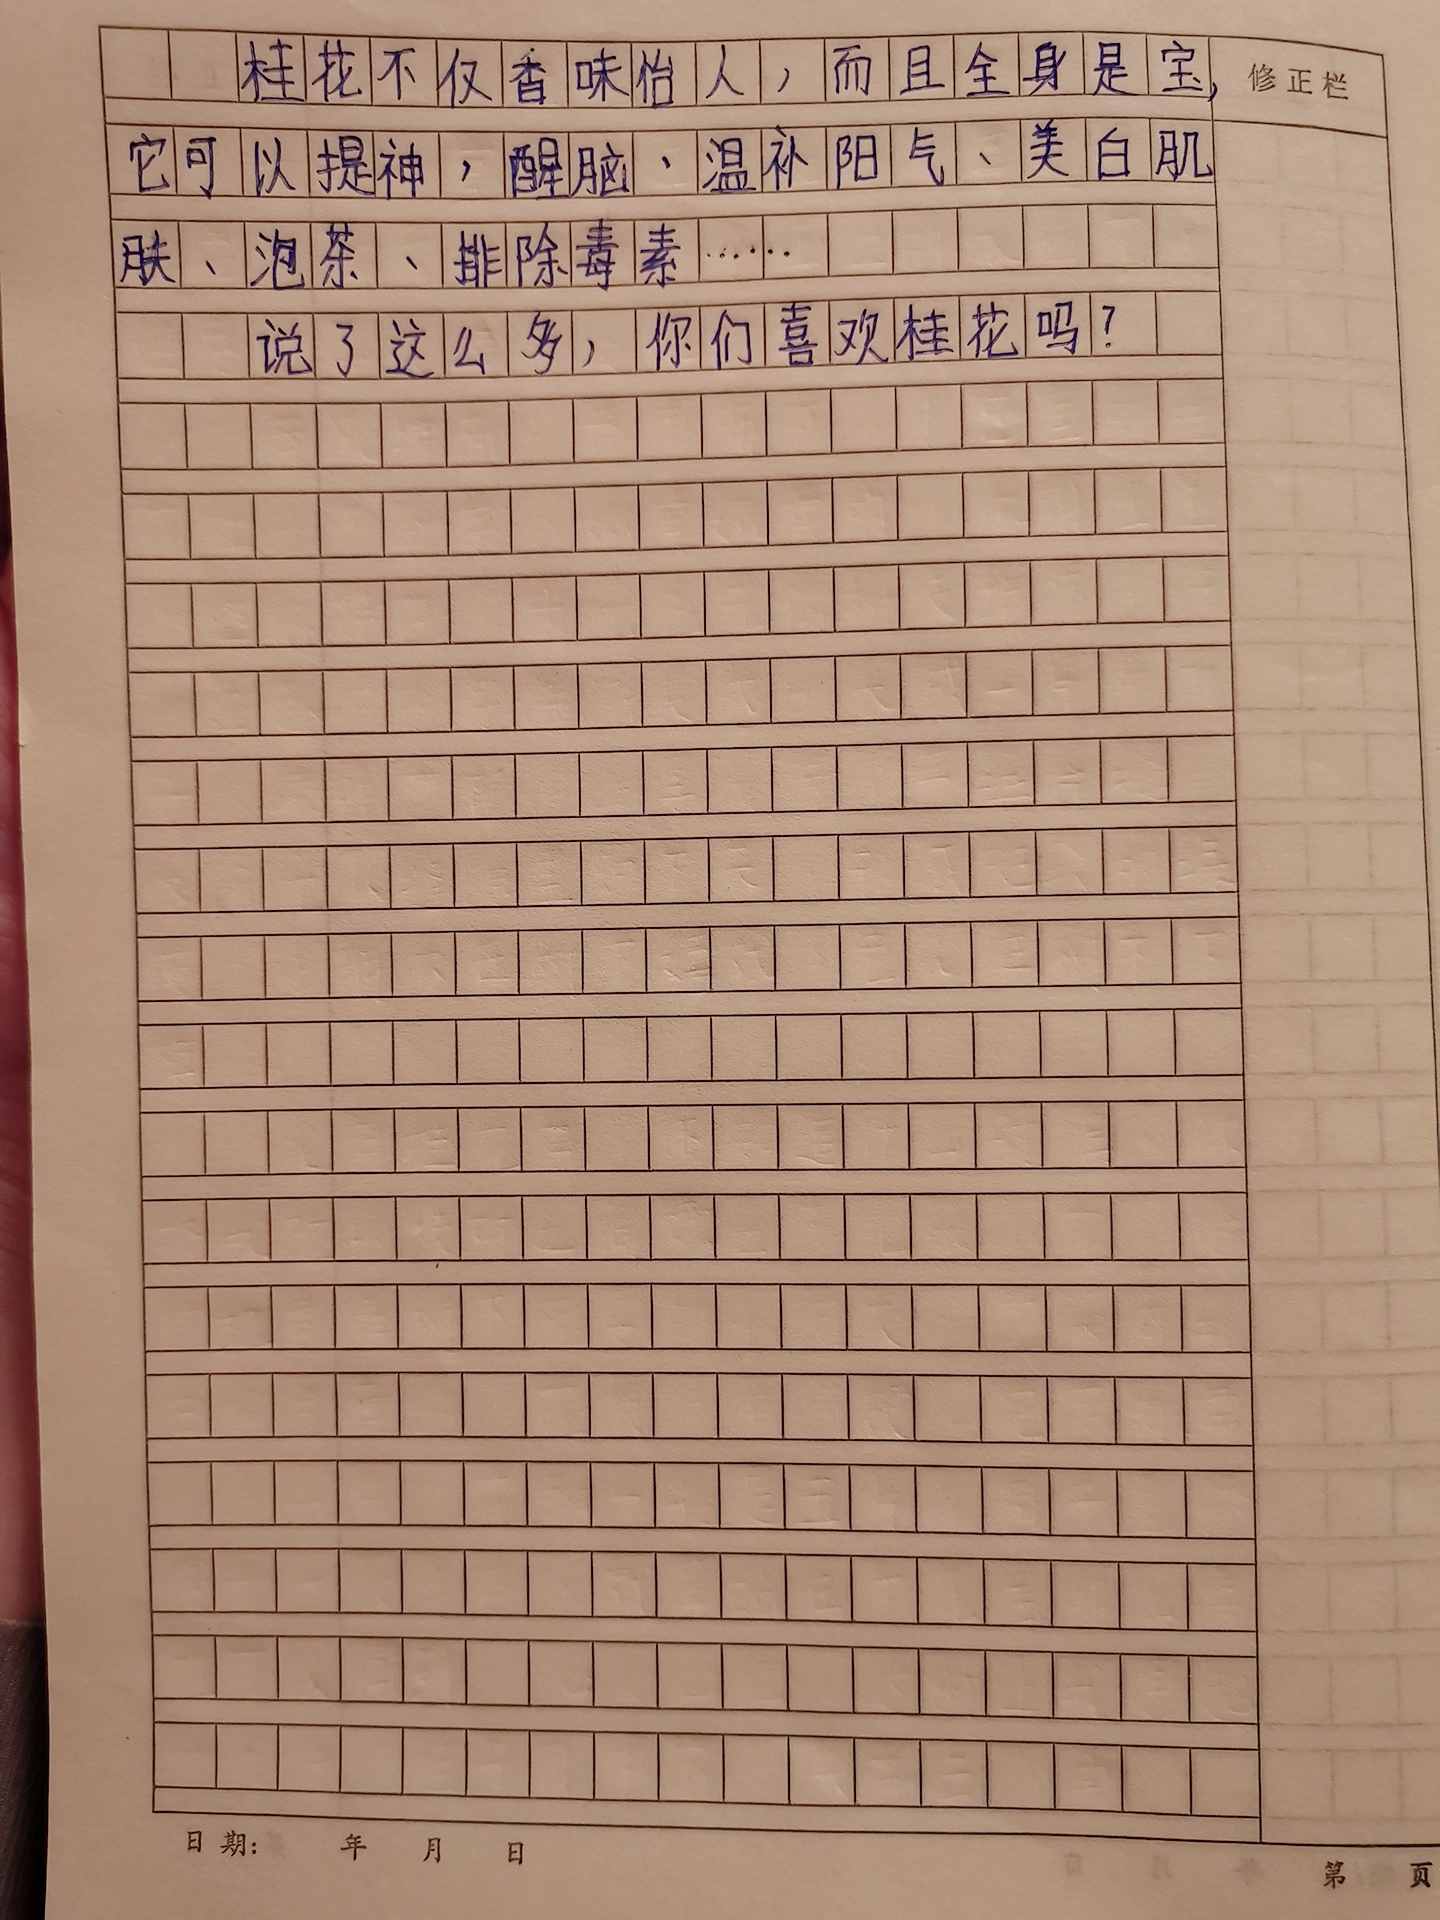 桂花不仅香味怡人，而且全身是宝，
修正栏
它可以提神，醒脑、温补阳气、美白肌
肤、泡茶、排除毒素……
说了这么多，你们喜欢桂花吗？
日期：　年　月　日
第　页